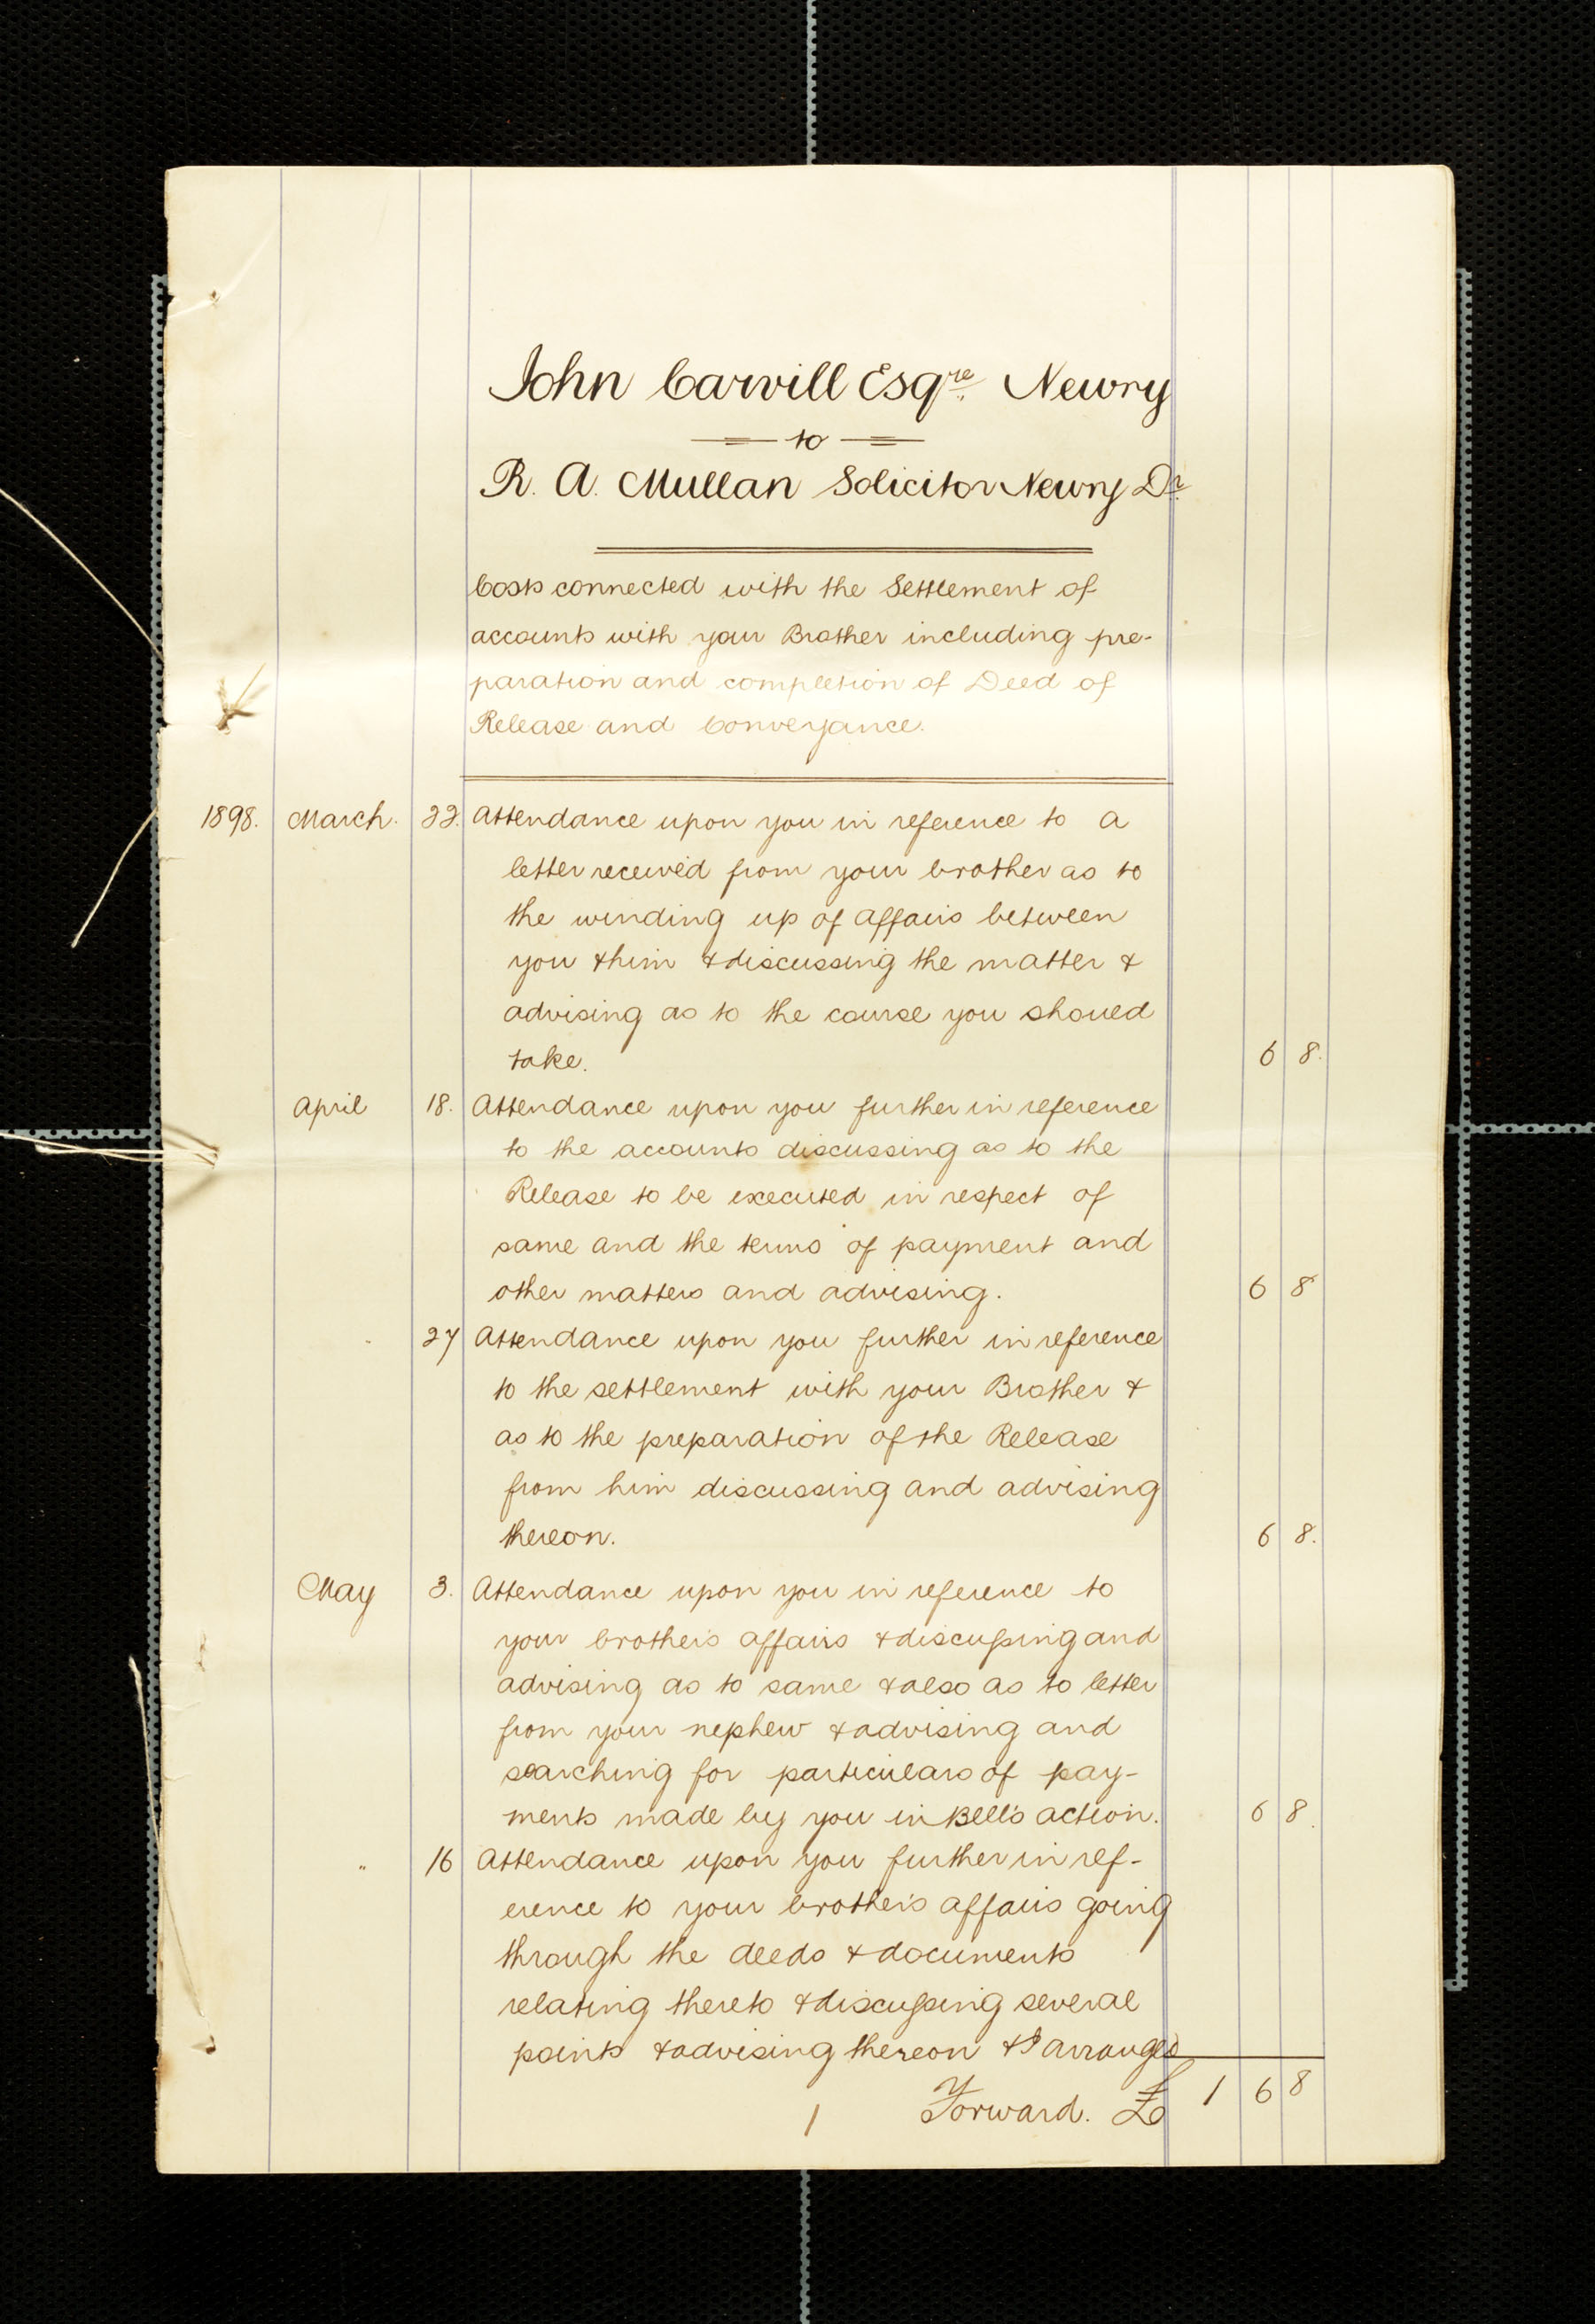 John Carvill Esqre. Newry
to
R. A. Mullan Solicitor Newry Dr.
Costs connected with the Settlement of
accounts with your Brother including pre-
paration and completion of Deed of
Release and Conveyance.
1898. March. 22. Attendance upon you in reference to a
letter received from your brother as to
the winding up of affairs between
you & him & discussing the matter &
advising as to the course you should
take. 6 8.
April 18. Attendance upon you further in reference
to the accounts discussing as to the
Release to be executed in respect of
same and the terms of payment and
other matters and advising. 6 8
" 27 Attendance upon you further in reference
to the settlement with your Brother &
as to the preparation of the Release
from him discussing and advising
thereon. 6 8.
May 3. Attendance upon you in reference to
your brother's affairs & discussing and
advising as to same & also as to letter
from your nephew & advising and
searching for particulars of pay-
ments made by you in Bell's action. 6 8.
" 16 Attendance upon you further in ref-
erence to your brother's affairs going
through the deeds & documents
relating thereto & discussing several
points & advising thereon & I arranged
Forward. £ 1 6 8
1